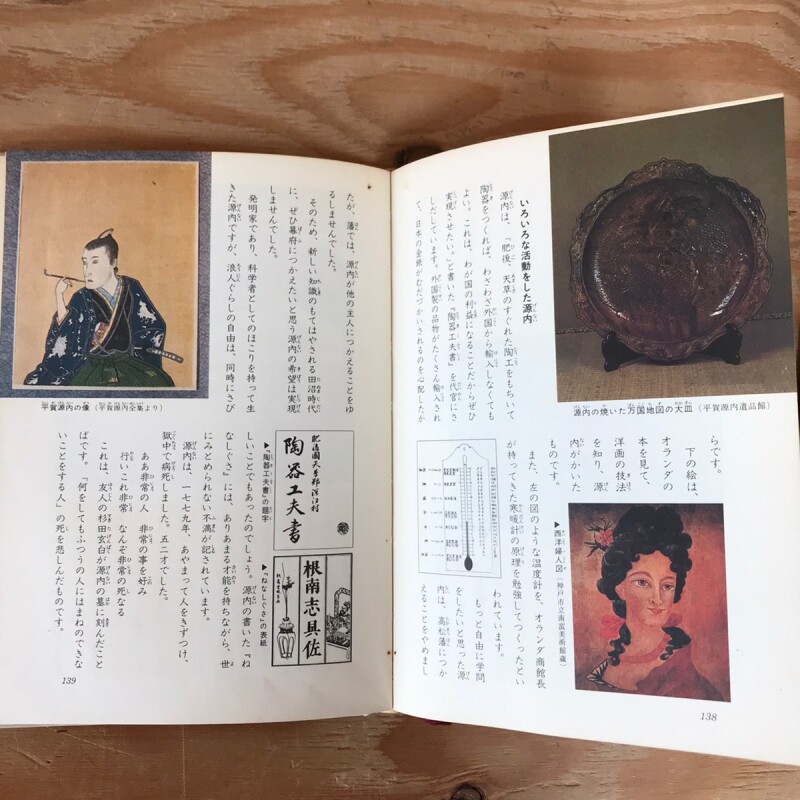 いろいろな活動をした源内
源内は、『肥後、天草のすぐれた陶工をもちいて
陶器をつくれば、わざわざ外国から輸入しなくても
よい。これは、わが国の利益になることだからぜひ
実現させたい。』と書いた『陶器工夫書』を代官にさ
しだしています。外国製の品物がたくさん輸入され
て、日本の金銀がむだづかいされるのを心配したか
源内の焼いた万国地図の大皿(平賀源内遺品館)
らです。
下の絵は、
オランダの
本を見て、
洋画の技法
を知り、源
内がかいた
ものです。
また、左の図のような温度計を、オランダ商館長
が持ってきた寒暖計の原理を勉強してつくったとい
われています。
もっと自由に学問
をしたいと思った源
内は、高松藩につか
えることをやめまし
▶西洋婦人図(神戸市立南蛮美術館蔵)
138
たが、藩では、源内が他の主人につかえることをゆ
るしませんでした。
そのため、新しい知識のもてはやされる田沼時代
に、ぜひ幕府につかえたいと思う源内の希望は実現
しませんでした。
発明家であり、科学者としてのほこりを持って生
きた源内ですが、浪人ぐらしの自由は、同時にさび
平賀源内の像(平賀源内全集より)
▶『陶器工夫書』の題字
肥後國天草郡深江村
陶器工夫書
▶『ねなしぐさ』の表紙
根南志具佐
しいことでもあったのでしょう。源内の書いた『ね
なしぐさ』には、ありあまる才能を持ちながら、世
にみとめられない不満が記されています。
源内は、一七七九年、あやまって人をきずつけ、
獄中で病死しました。五二才でした。
ああ非常の人 非常の事を好み
行いこれ非常 なんぞ非常の死なる
これは、友人の杉田玄白が源内の墓に刻んだこと
ばです。「何をしてもふつうの人にはまねのできな
いことをする人」の死を悲しんだものです。
139